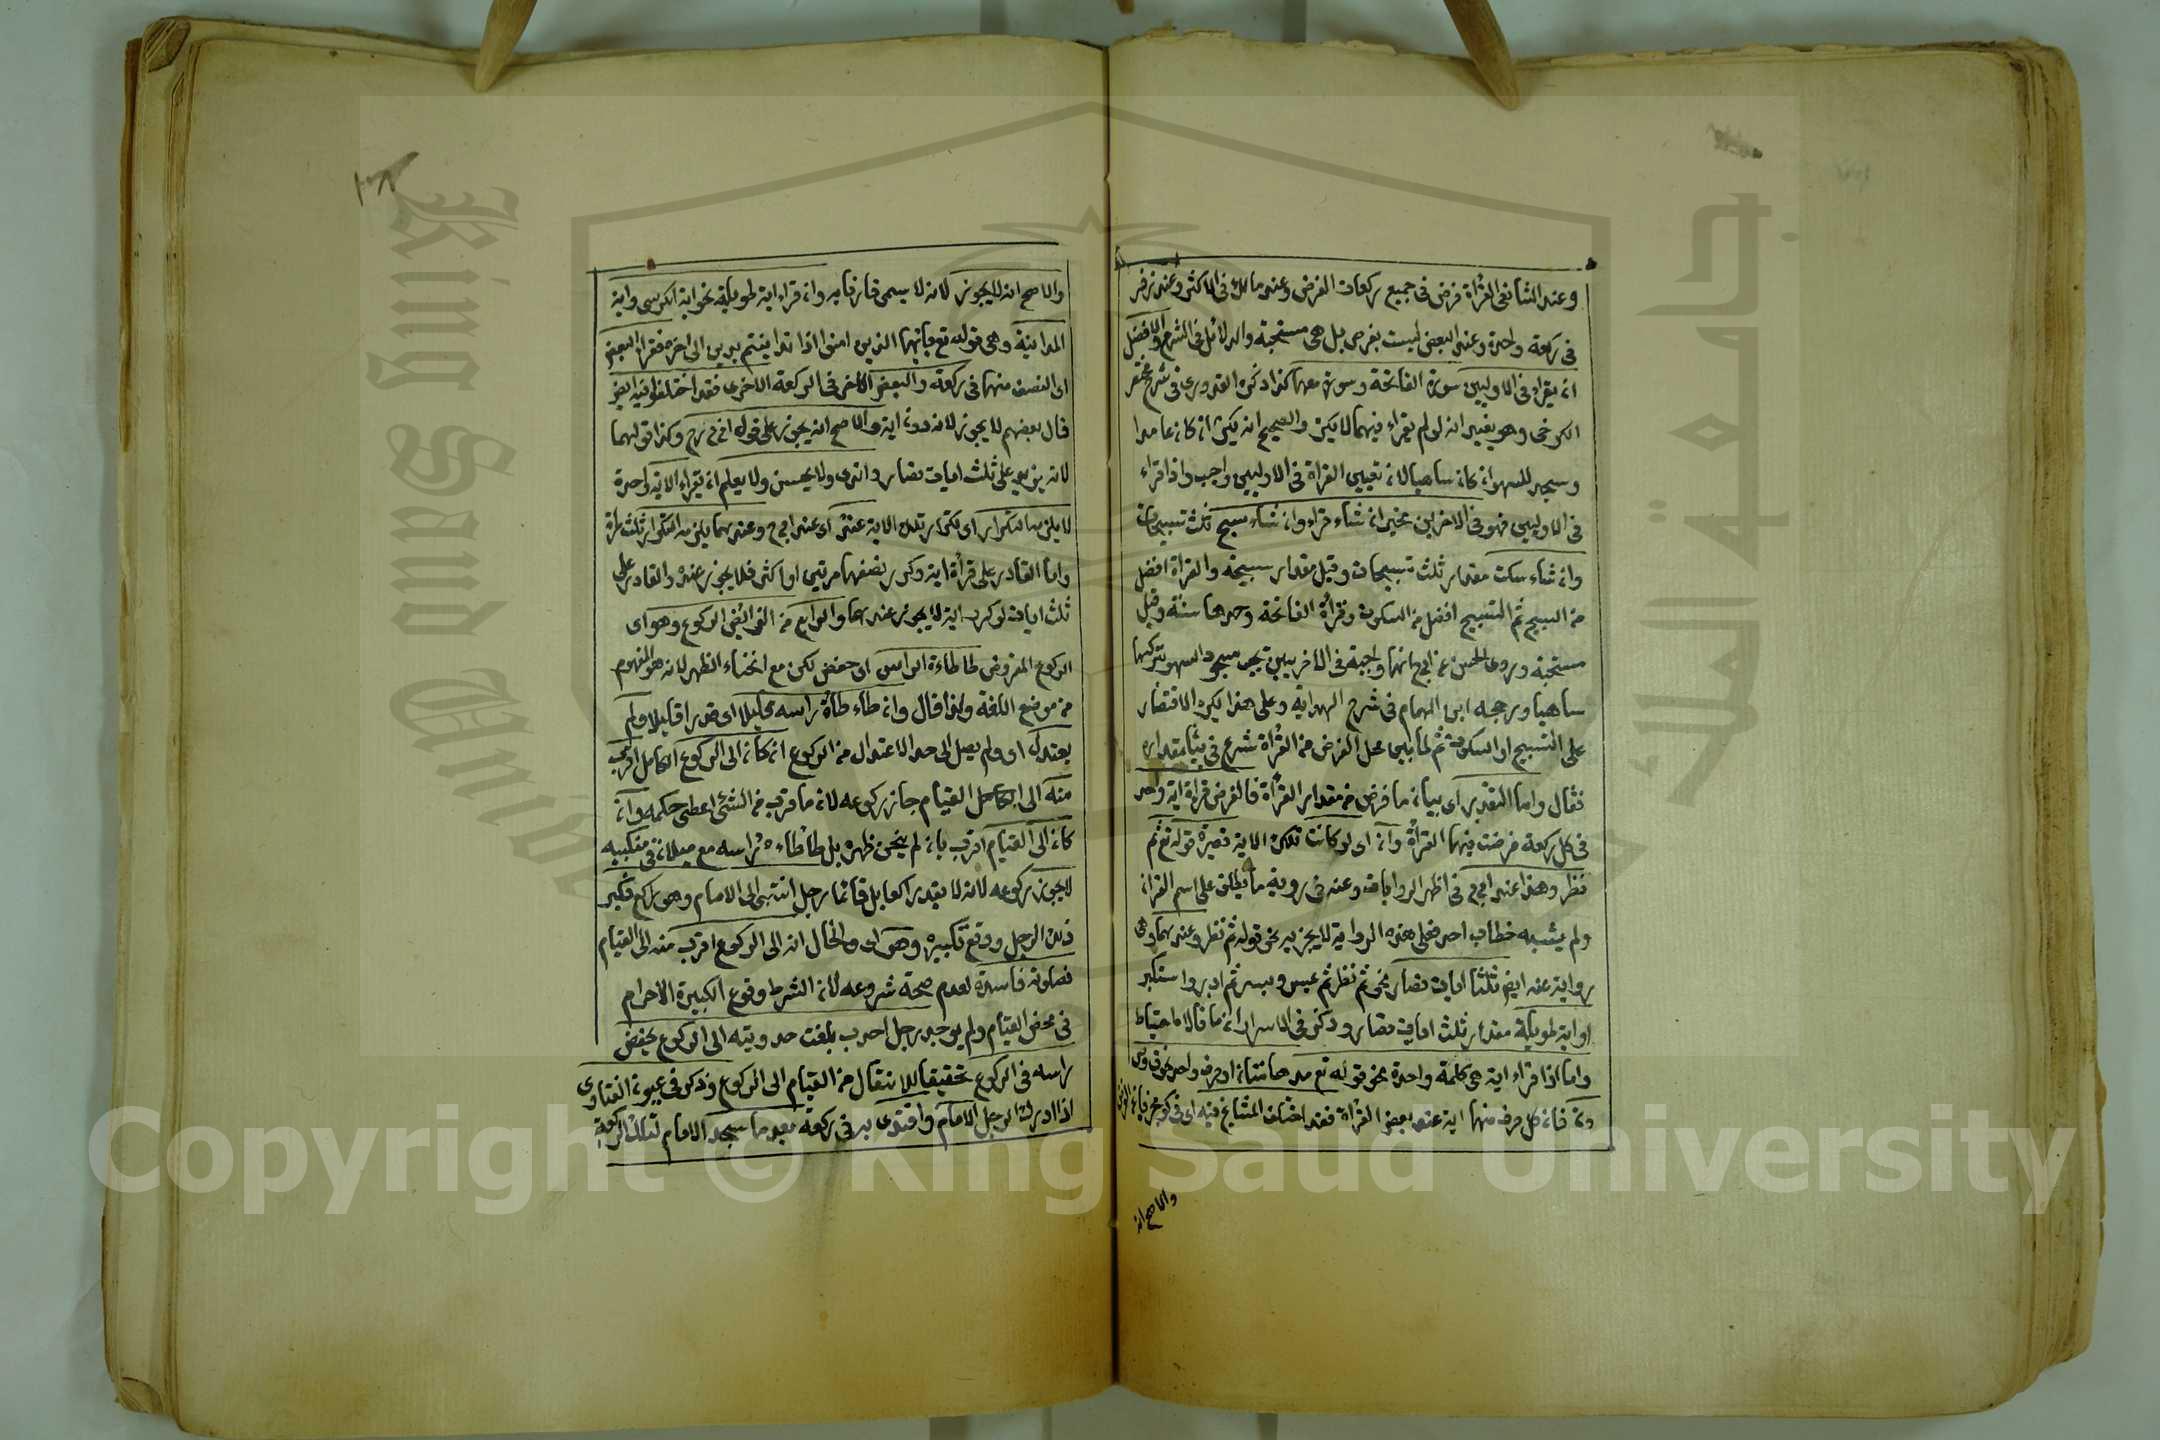 وعند الشافعي القرأة فرض في جميع ركعات الفرض وعند مالك في الاكثر وعند زفر
في ركعة واحدة وعند البعض ليست بفرض بل هي مستحبة والدلائل في الشرح والافضل
ان يقراء في الاوليين سورة الفاتحة وسورة معها كذا ذكره القدوري في شرح مختصر
الكرخي وهو يفيد انه لو لم يقراء فيهما لا يكره والصحيح انه يكره ان كان عامدا
وسجد للسهو ان كان ساهيا لان تعيين القرأة في الاوليين واجب واذا قراء
في الاوليين فهو في الاخريين مخير ان شاء قراء وان شاء سبح ثلث تسبيحات
وان شاء سكت مقدار ثلث تسبيحات وقيل مقدار تسبيحة والقرأة افضل
من التسبيح ثم التسبيح افضل من السكوت وقرأة الفاتحة وحدها سنة وقيل
مستحبة وروى الحسن عن ابي ح انها واجبة في الاخريين يجب سجود السهو بتركها
ساهيا ورجحه ابن الهمام في شرح الهداية وعلى هذا يكره الاقتصار
على التسبيح او السكوت ثم لما بين محل الفرض من القرأة شرع في بيان مقداره
فقال واما التقدير اى بيان ما فرض من مقدار القرأة فالفرض قرأة اية واحدة
في كل ركعة فرضت فيها القرأة وان اى لو كانت تلك الاية قصيرة قوله تع ثم
نظر وهذا عند ابي ح في اظهر الروايات وعنه في رواية ما يطلق على اسم القران
ولم يشبه خطاب احد فعلى هذه الرواية لا يجزيه نحو قوله ثم نظر وعندهما وهي
رواية عنه ايض ثلث ايات قصار نحو ثم نظر ثم عبس وبسر ثم ادبر واستكبر
او اية طويلة مقدار ثلث ايات قصار وذكر في الاسرار ان ما قالا احتياط
واما اذا قراء اية هي كلمة واحدة نحو قوله تع مدهامتان او حرف واحد نحو ق وص
ون فان كل حرف منها اية عند بعض القرأة فقد اختلف المشايخ فيه اى في كونه
والاصح انه
والاصح انه لا يجوز لانه لا يسمى قارئا به وان قراء اية طويلة نحو اية الكرسي واية
المداينة وهي قوله تع يا ايها الذين امنوا اذا تداينتم بدين الى اخره فقراء البعض
اى النصف منها في ركعة والبعض الاخر في الركعة الاخرى فقد اختلفوا فيه ايض
قال بعضهم لا يجوز لانه دون اية والاصح انه يجوز على قول ابي ح رح وكذا قولهما
لانه يزيد على ثلث ايات قصار والذى ولا يحسن ولا يعلم ان يقراء الا اية واحدة
لا يلزمه التكرار اى تكرار تلك الاية عنده اى عند ابي ح وعندهما يلزمه التكرار ثلث مرة
واما القادر على قرأة اية وكرر نصفها مرتين او اكثر فلا يجوز عنده والقادر على
ثلث ايات لو كرر اية لا يجوز عندهما والرابع من الفرائض الركوع وهو اى
الركوع المفروض طاطاءة الراس اى خفض لكن مع انحناء الظهر لانه هو المفهوم
من موضع اللغة ولذا قال وان طاء طاء راسه قليلا اى قدرا قليلا ولم
يعتدل اى ولم يصل الى حد الاعتدال من الركوع ان كان الى الركوع الكامل اقرب
منه الى القيام جاز ركوعه لان ما قرب من الشئ اعطى حكمه وان
كان الى القيام اقرب بان لم يحن ظهره بل طاطاء راسه مع ميلان في منكبيه
لا يجوز ركوعه لانه لا يعد راكعا بل قائما رجل انتهى الى الامام وهو راكع فكبر
ذلك الرجل ووقع تكبيره وهو اى والحال انه الى الركوع اقرب منه الى القيام
فصلوته فاسدة لعدم صحة شروعه لان الشرط وقوع تكبيرة الاحرام
في محض القيام ولم يوجد رجل احدب بلغت حدوبته الى الركوع يخفض
راسه في الركوع تحقيقا للانتقال من القيام الى الركوع وذكر في عيون الفتاوى
اذا ادرك الرجل الامام واقتدى به في ركعة بعد ما سجد الامام لتلك الركعة
King Saud University
جامعة الملك
Copyright © King Saud University